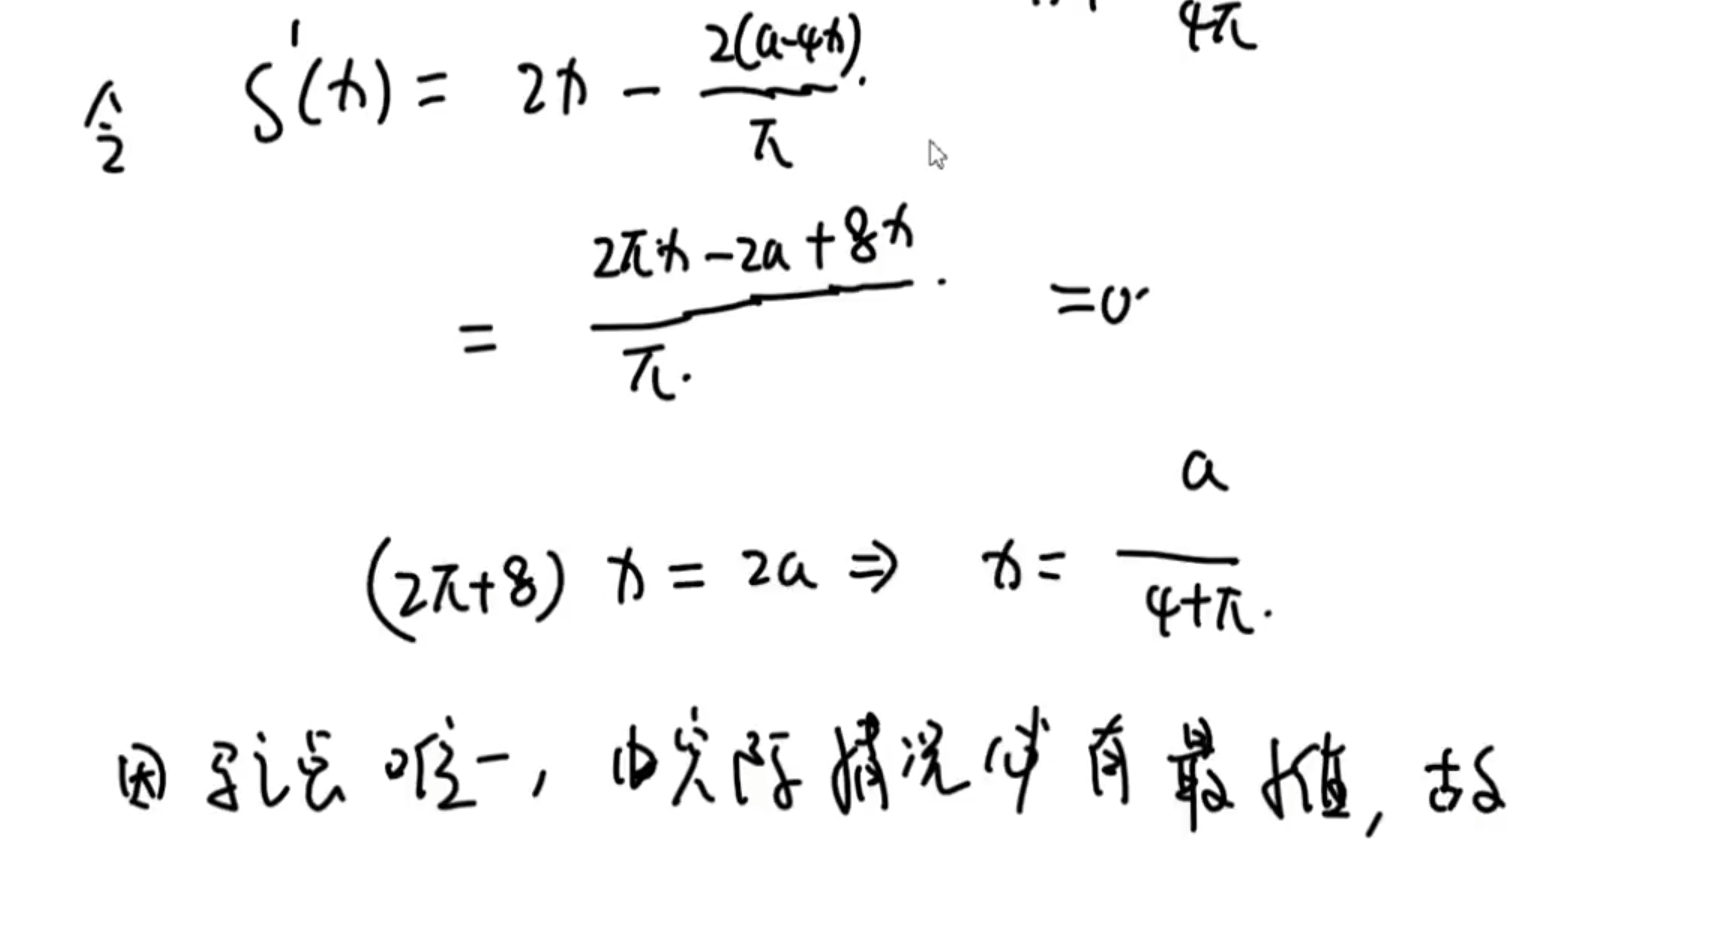 4π
令 S'(x) = 2x - \frac{2(a-4x)}{π}.
= \frac{2πx - 2a + 8x}{π}. = 0.
(2π+8) x = 2a ⇒ x = \frac{a}{4+π}.
因驻点唯一, 由实际情况必有最值, 故